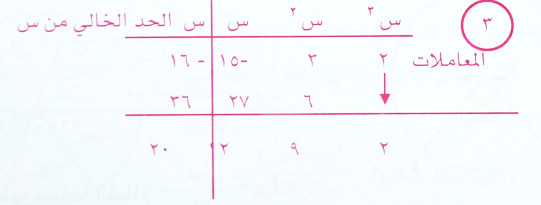 ٣
س٣ س٢ س س الحد الخالي من س
المعاملات ٢ ٣ -١٥ -١٦
٦ ٢٧ ٣٦
٢ ٩ ١٢ ٢٠